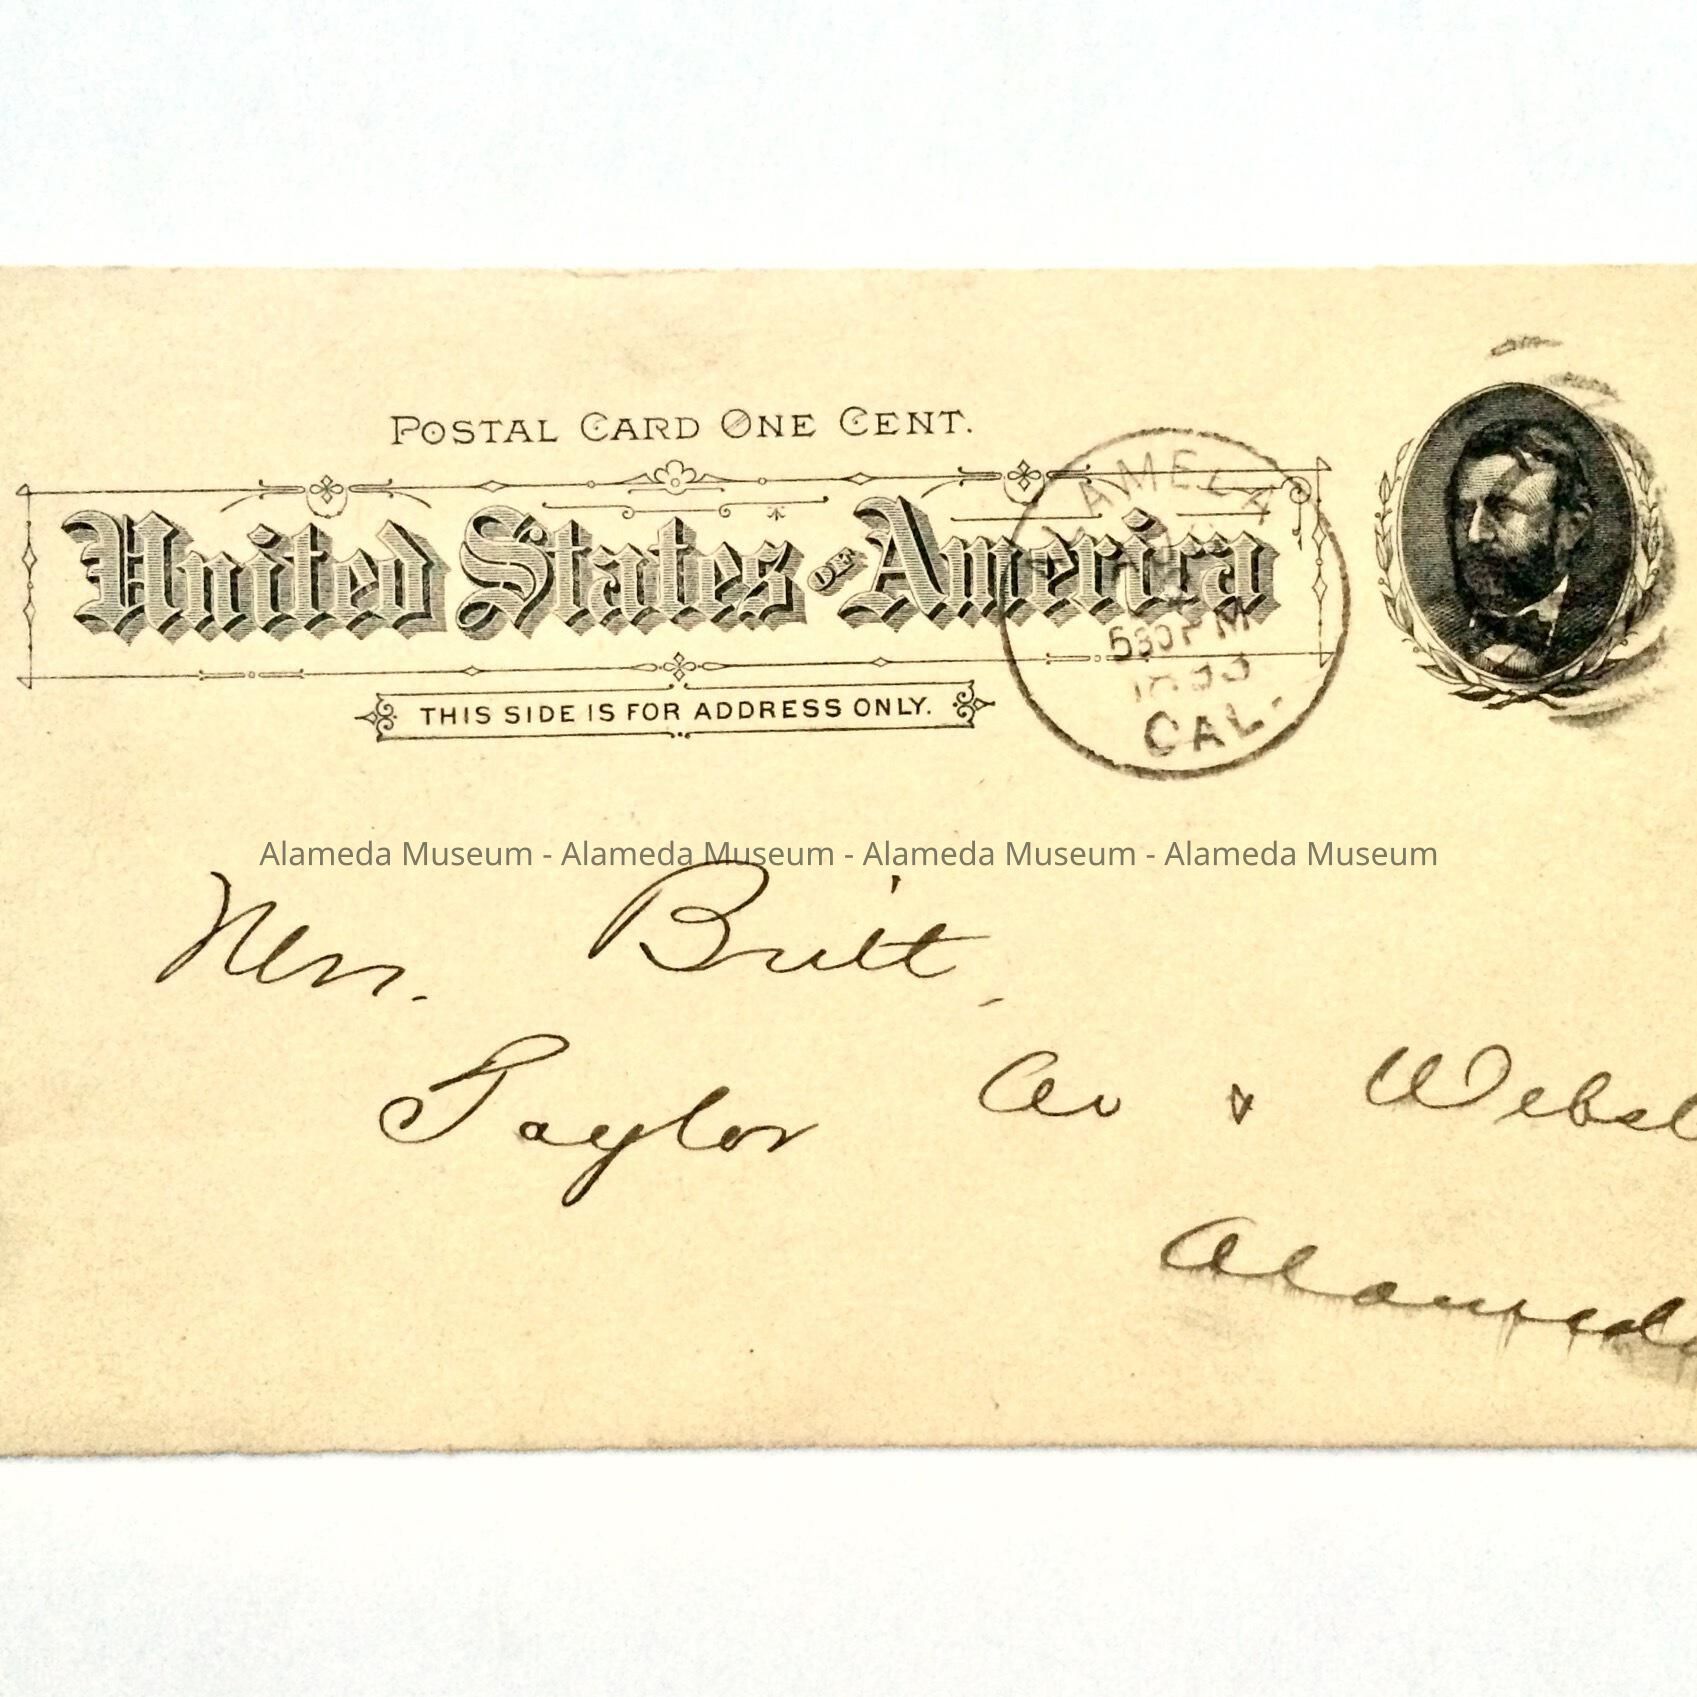 POSTAL CARD ONE CENT.
United States OF America
THIS SIDE IS FOR ADDRESS ONLY.
ALAMEDA
530 PM
1893
CAL.
Alameda Museum - Alameda Museum - Alameda Museum - Alameda Museum
Mrs. Britt,
Taylor Av & Webst
Alameda